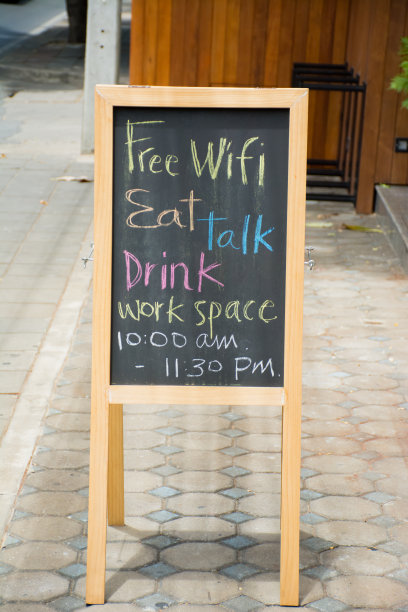 Free Wifi
Eat talk
Drink
work space
10:00 am.
- 11:30 pm.